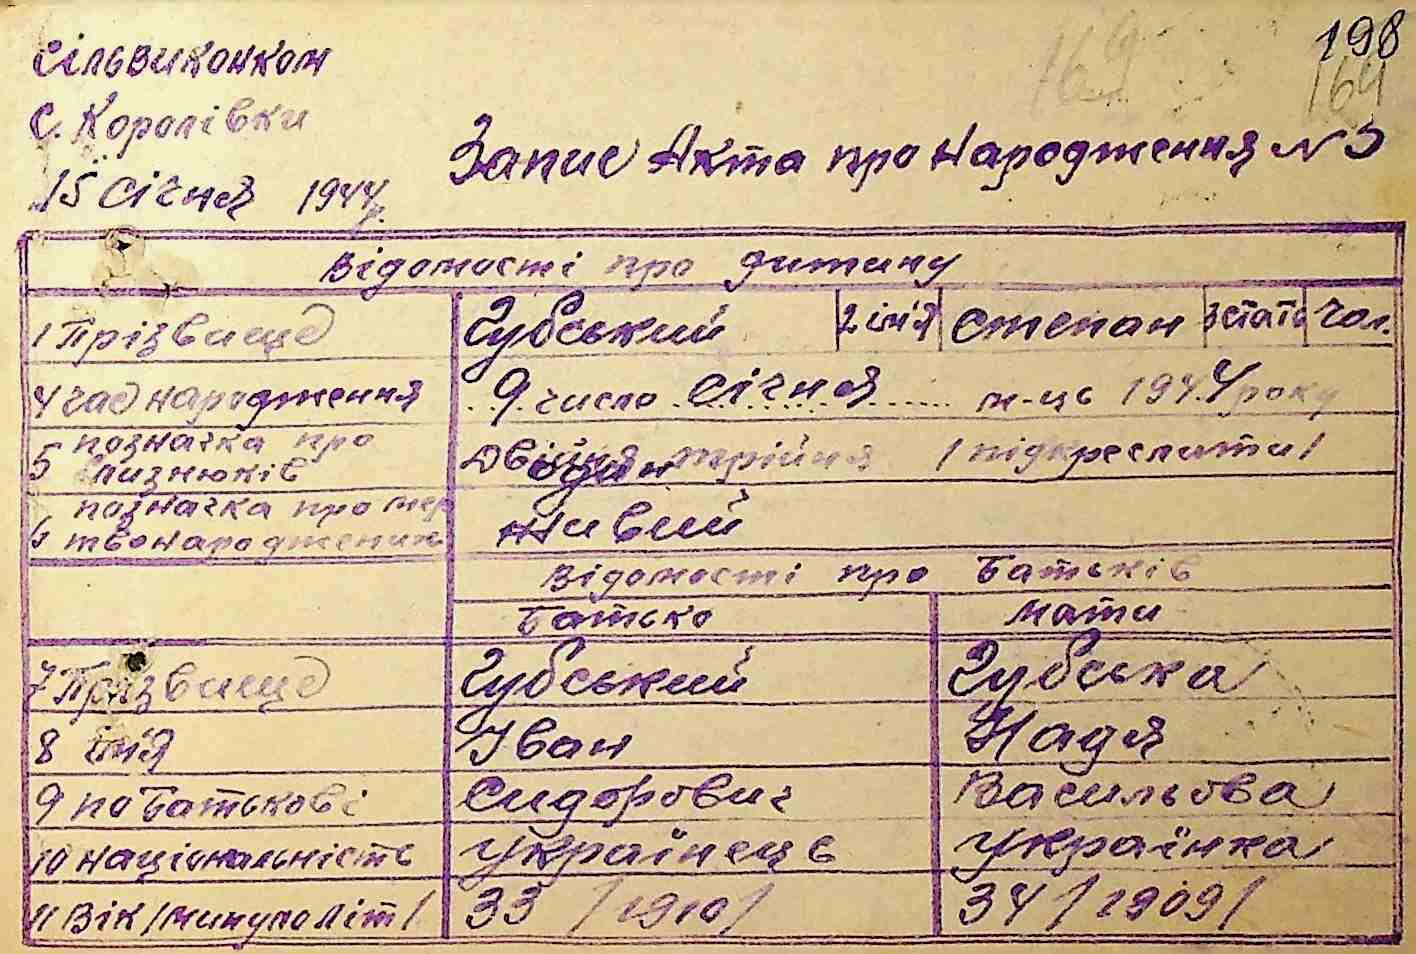 198
169
164
Сільвиконком
С. Королівки
15 Січня 1944 р.
Запис Акта про Народження № 3
Відомості про дитину
1 Прізвище Губський 2 ім'я Степан 3 стать Чол.
4 час народження 9 число Січня м-ць 1944 року
5 позначка про близнюків Двійня трійня /підкреслити/
один
6 позначка про мертвонароджених живий
Відомості про Батьків
Батько Мати
7 Прізвище Губський Губська
8 ім'я Іван Надя
9 по Батькові Сидорович Васильова
10 національність Українець Українка
11 Вік /минуло літ/ 33 /1910/ 34 /1909/